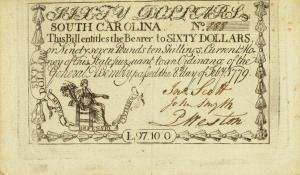 SIXTY DOLLARS.
SOUTH CAROLINA. No.
This Bill entitles the Bearer to SIXTY DOLLARS,
or Ninety seven Pounds ten Shillings, Current Mo-
ney of this State, pursuant to an Ordinance of the
General Assembly passed the 8 day of Feb. 1779.
John Smyth
P Weston
L.97.10.0